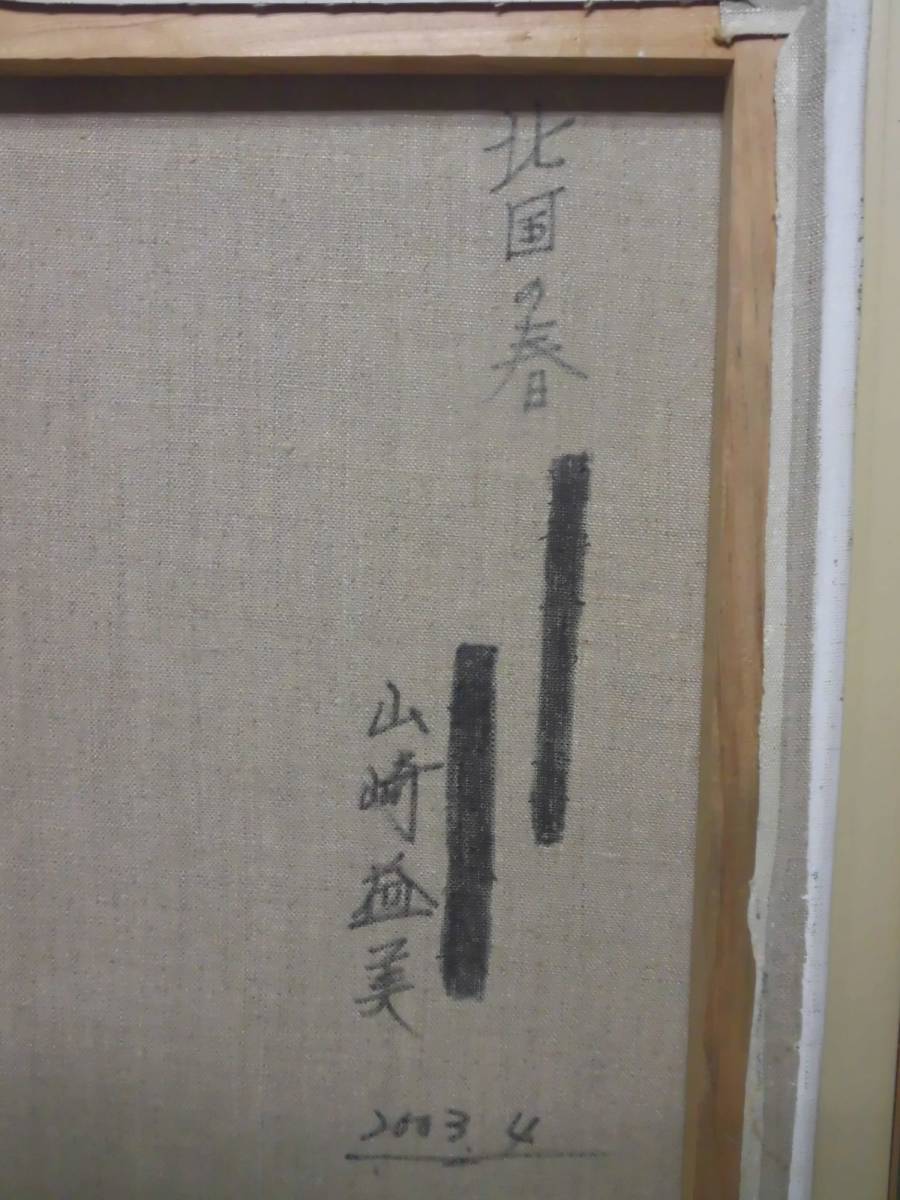 北国の春
山崎益美
2003.4